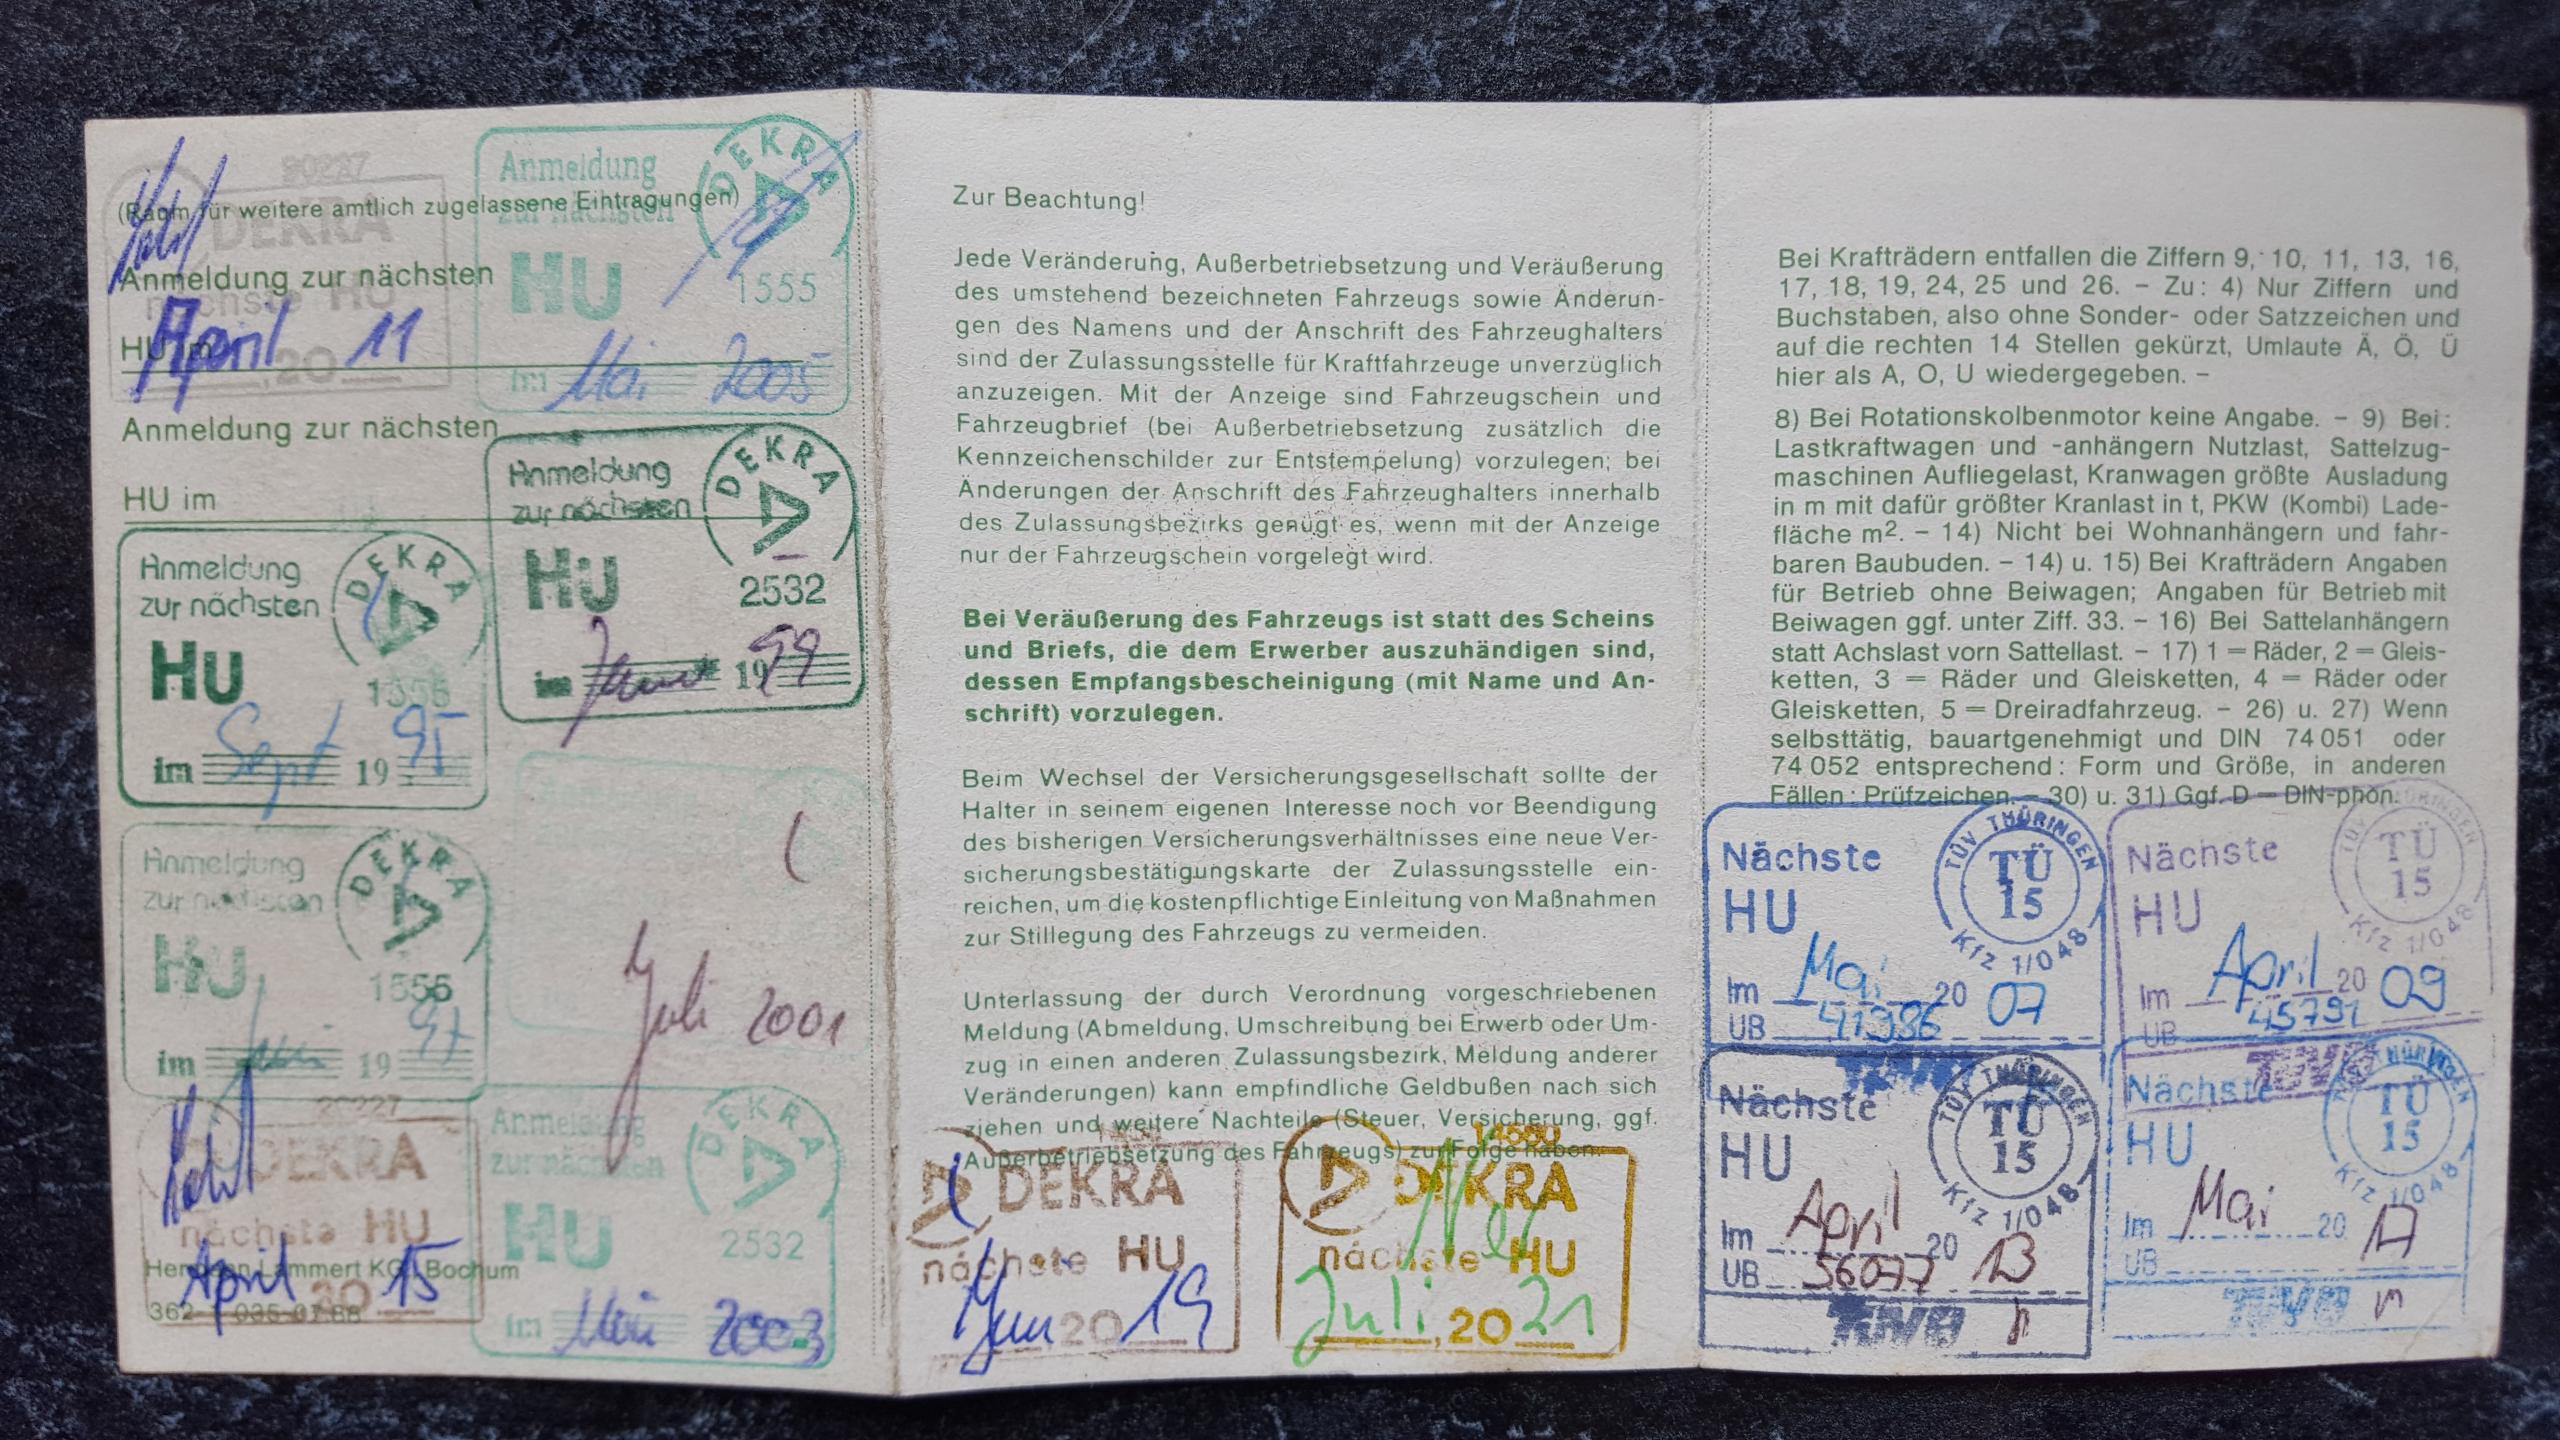 20227
DEKRA
nächste HU
April 11
20
(Raum für weitere amtlich zugelassene Eintragungen)
Anmeldung zur nächsten
HU im
Anmeldung zur nächsten
HU im
Anmeldung
zur nächsten
HU
DEKRA
1555
im Mai 2005
Anmeldung
zur nächsten
HU
DEKRA
2532
im 19 99
Anmeldung
zur nächsten
HU
DEKRA
im Sept 19 95
Anmeldung
zur nächsten
HU
DEKRA
im 19 97
Juli 2001
20227
DEKRA
nächste HU
April 20 15
Hermann Lammert KG, Bochum
Anmeldung
zur nächsten
HU
DEKRA
2532
im 2003
Zur Beachtung!
Jede Veränderung, Außerbetriebsetzung und Veräußerung
des umstehend bezeichneten Fahrzeugs sowie Änderun-
gen des Namens und der Anschrift des Fahrzeughalters
sind der Zulassungsstelle für Kraftfahrzeuge unverzüglich
anzuzeigen. Mit der Anzeige sind Fahrzeugschein und
Fahrzeugbrief (bei Außerbetriebsetzung zusätzlich die
Kennzeichenschilder zur Entstempelung) vorzulegen; bei
Änderungen der Anschrift des Fahrzeughalters innerhalb
des Zulassungsbezirks genügt es, wenn mit der Anzeige
nur der Fahrzeugschein vorgelegt wird.
Bei Veräußerung des Fahrzeugs ist statt des Scheins
und Briefs, die dem Erwerber auszuhändigen sind,
dessen Empfangsbescheinigung (mit Name und An-
schrift) vorzulegen.
Beim Wechsel der Versicherungsgesellschaft sollte der
Halter in seinem eigenen Interesse noch vor Beendigung
des bisherigen Versicherungsverhältnisses eine neue Ver-
sicherungsbestätigungskarte der Zulassungsstelle ein-
reichen, um die kostenpflichtige Einleitung von Maßnahmen
zur Stillegung des Fahrzeugs zu vermeiden.
Unterlassung der durch Verordnung vorgeschriebenen
Meldung (Abmeldung, Umschreibung bei Erwerb oder Um-
zug in einen anderen Zulassungsbezirk, Meldung anderer
Veränderungen) kann empfindliche Geldbußen nach sich
ziehen und weitere Nachteile (Steuer, Versicherung, ggf.
Außerbetriebsetzung des Fahrzeugs) zur Folge haben.
DEKRA
nächste HU
20 19
DEKRA
nächste HU
Juli, 20 21
Bei Krafträdern entfallen die Ziffern 9, 10, 11, 13, 16,
17, 18, 19, 24, 25 und 26. – Zu: 4) Nur Ziffern und
Buchstaben, also ohne Sonder- oder Satzzeichen und
auf die rechten 14 Stellen gekürzt, Umlaute Ä, Ö, Ü
hier als A, O, U wiedergegeben. –
8) Bei Rotationskolbenmotor keine Angabe. – 9) Bei:
Lastkraftwagen und -anhängern Nutzlast, Sattelzug-
maschinen Aufliegelast, Kranwagen größte Ausladung
in m mit dafür größter Kranlast in t, PKW (Kombi) Lade-
fläche m². – 14) Nicht bei Wohnanhängern und fahr-
baren Baubuden. – 14) u. 15) Bei Krafträdern Angaben
für Betrieb ohne Beiwagen; Angaben für Betrieb mit
Beiwagen ggf. unter Ziff. 33. – 16) Bei Sattelanhängern
statt Achslast vorn Sattellast. – 17) 1 = Räder, 2 = Gleis-
ketten, 3 = Räder und Gleisketten, 4 = Räder oder
Gleisketten, 5 = Dreiradfahrzeug. – 26) u. 27) Wenn
selbsttätig, bauartgenehmigt und DIN 74 051 oder
74 052 entsprechend: Form und Größe, in anderen
Fällen: Prüfzeichen. – 30) u. 31) Ggf. D = DIN-phon.
Nächste
HU
TÜV THÜRINGEN
TÜ
15
Kfz 1/048
Im Mai 20 07
UB 41986
Nächste
HU
TÜV THÜRINGEN
TÜ
15
Kfz 1/048
Im April 20 09
UB 45791
Nächste
HU
TÜV THÜRINGEN
TÜ
15
Kfz 1/048
Im April 20 13
UB 56077
Nächste
HU
THÜRINGEN
TÜ
15
Kfz 1/048
Im Mai 20 17
UB